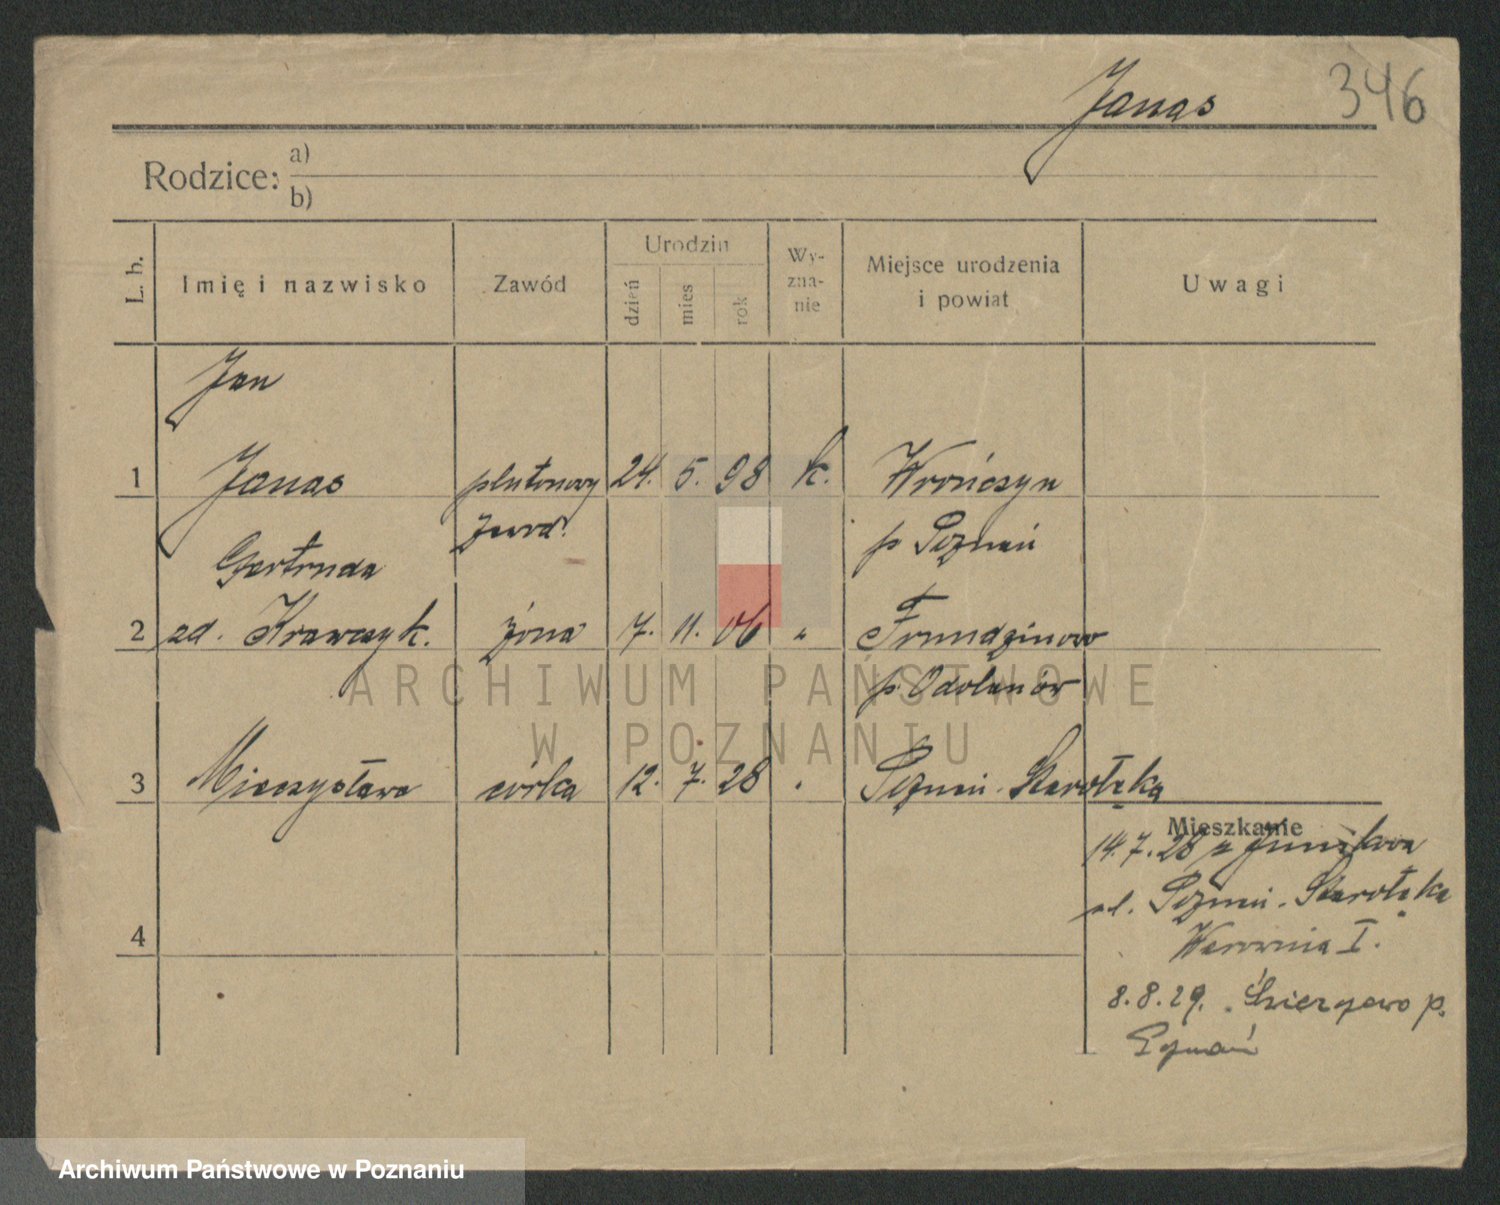 Janas 346
Rodzice: a)
b)
L. b. Imię i nazwisko Zawód Urodzin dzień mies rok Wy-zna-nie Miejsce urodzenia i powiat Uwagi
Jan
1 Janas plutonowy 24. 5. 98 k. Wrończyn
zawod. p Poznań
Gertruda
2 zd. Krawczyk. żona 7. 11. 06 "
p. Odolanów
3 Mieczysława córka 12. 7. 28 " Poznań - Starołęka
Mieszkanie
14. 7. 28 z Junikowa
4
ul. Poznań - Starołęka
I.
8. 8. 29. p.
Poznań
ARCHIWUM PAŃSTWOWE
W POZNANIU
Archiwum Państwowe w Poznaniu